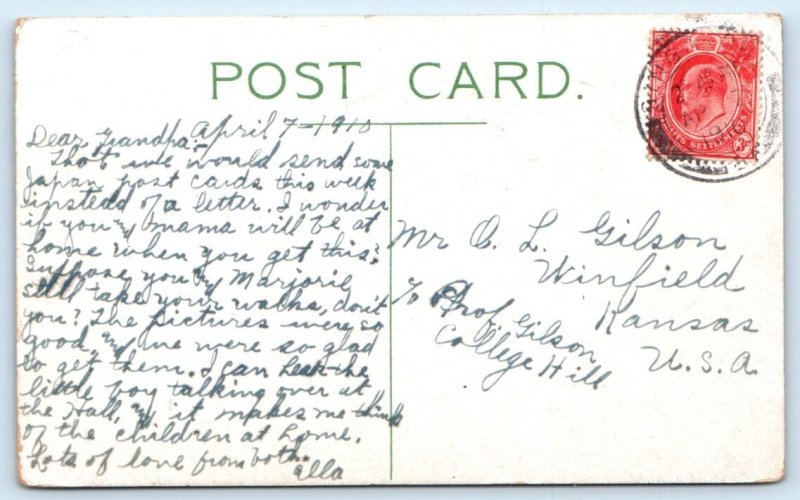 POST CARD.
April 7-1910
Dear Grandpa:-
Thot we would send some
Japan post cards this week
instead of a letter. I wonder
if you & mama will be at
home when you get this.
Suppose you & Marjorie
still take your walks, don't
you? The pictures were so
good, & we were so glad
to get them. I can hear the
little boy talking over at
the Hall, & it makes me think
of the children at home.
Lots of love from both.
Ella
Mr O. L. Gilson
Winfield
Kansas
U.S.A
% Prof. Gilson
College Hill
SETTLEMENTS